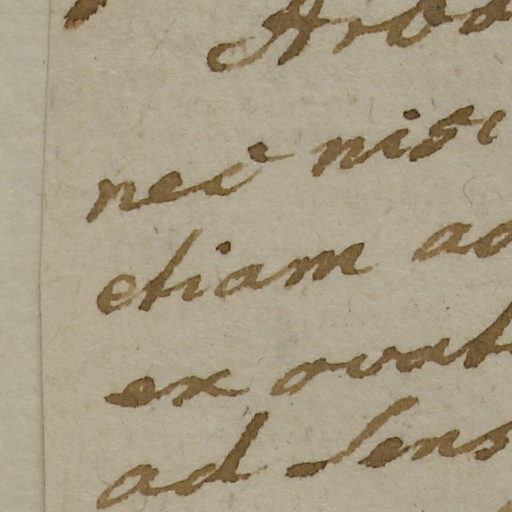 Arbo
nec nisi
etiam ad
ex ovat
ad sens